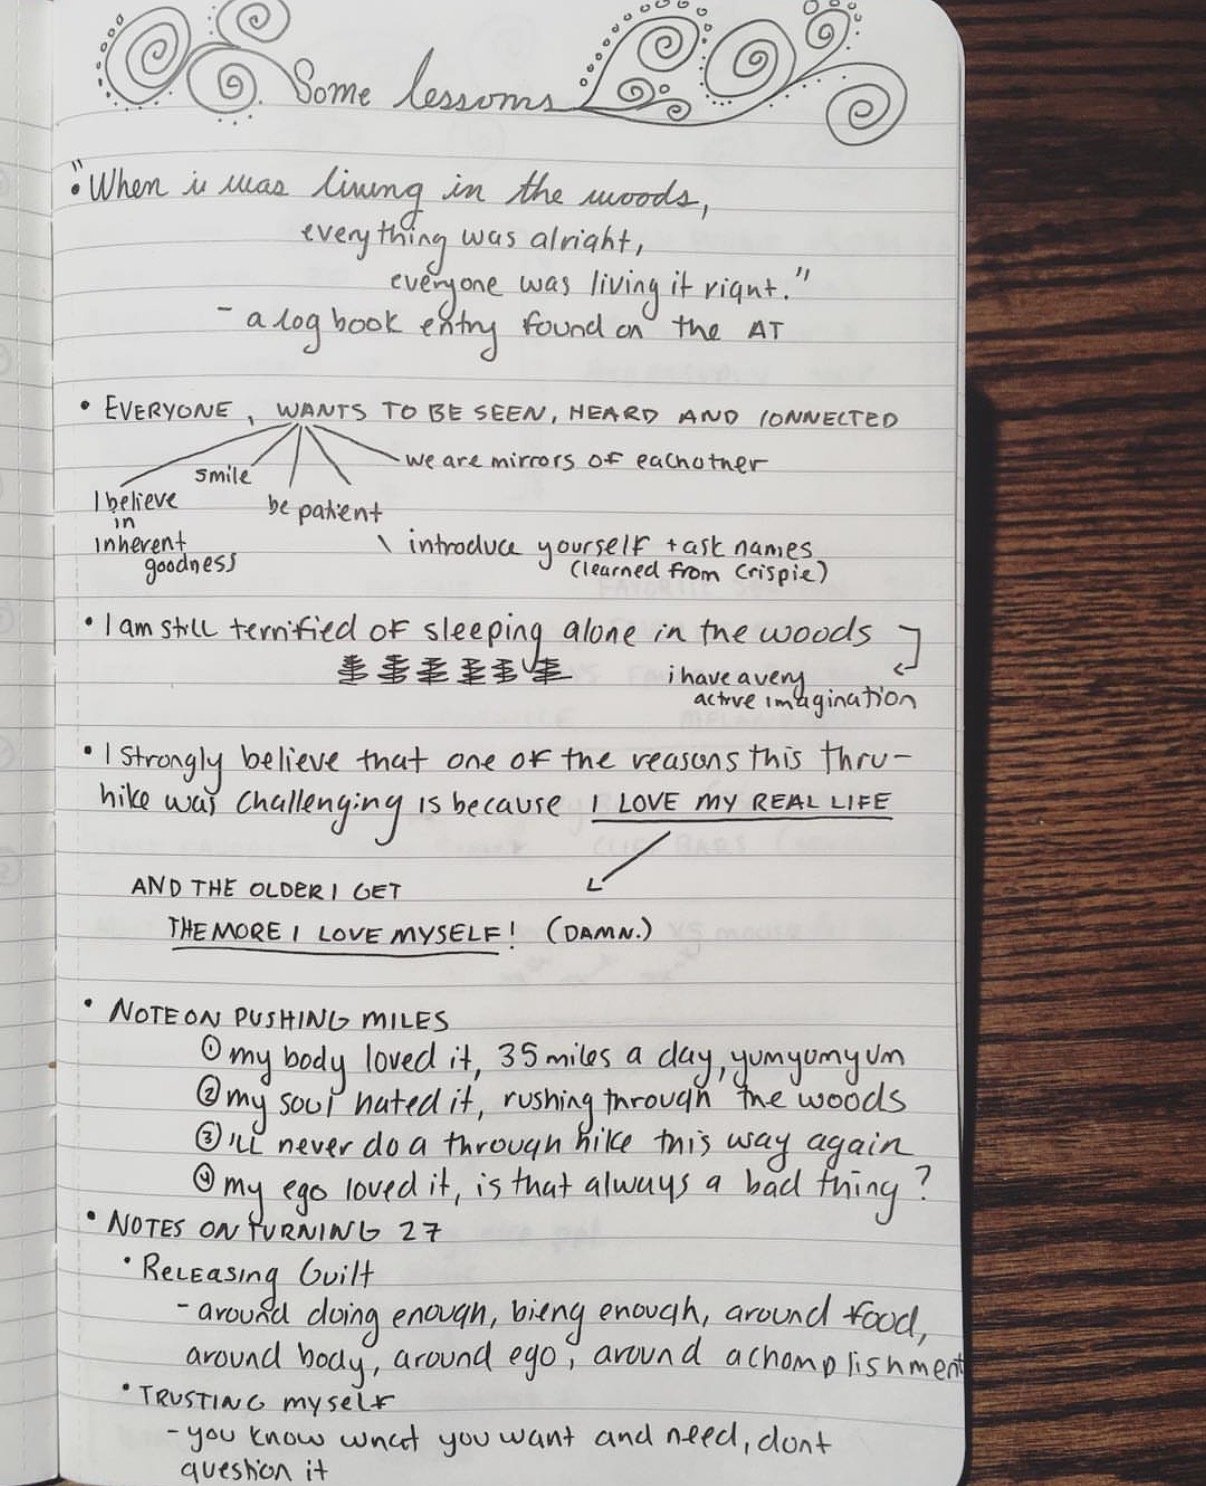 Some lessons
• "When i was living in the woods,
everything was alright,
everyone was living it right."
- a log book entry found on the AT
• EVERYONE, WANTS TO BE SEEN, HEARD AND CONNECTED
we are mirrors of eachother
smile
I believe
in
inherent
goodness
be patient
introduce yourself + ask names
(learned from Crispie)
• I am still terrified of sleeping alone in the woods
i have a very
active imagination
• I strongly believe that one of the reasons this thru-
hike was challenging is because I LOVE MY REAL LIFE
AND THE OLDER I GET
THE MORE I LOVE MYSELF! (DAMN.)
• NOTE ON PUSHING MILES
① my body loved it, 35 miles a day, yumyumyum
② my soul hated it, rushing through the woods
③ i'll never do a through hike this way again
④ my ego loved it, is that always a bad thing?
• NOTES ON TURNING 27
• RELEASING Guilt
- around doing enough, bieng enough, around food,
around body, around ego, around achomplishment
• TRUSTING myself
- you know what you want and need, dont
question it